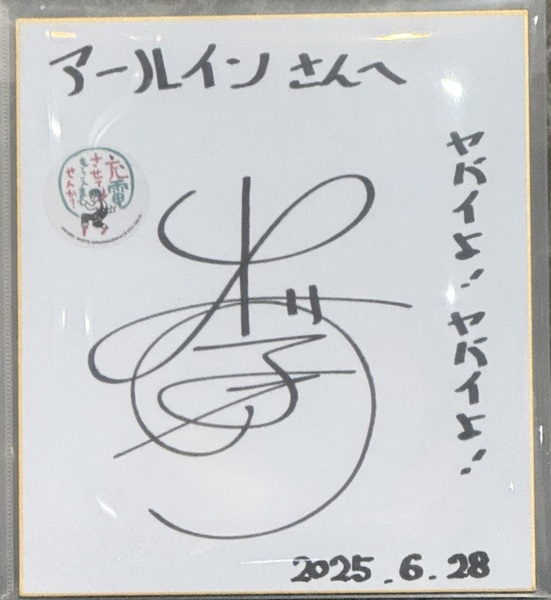 アールインさんへ
ヤバイよ!! ヤバイよ!!
充電
させて
もらえま
せんか?
2025.6.28